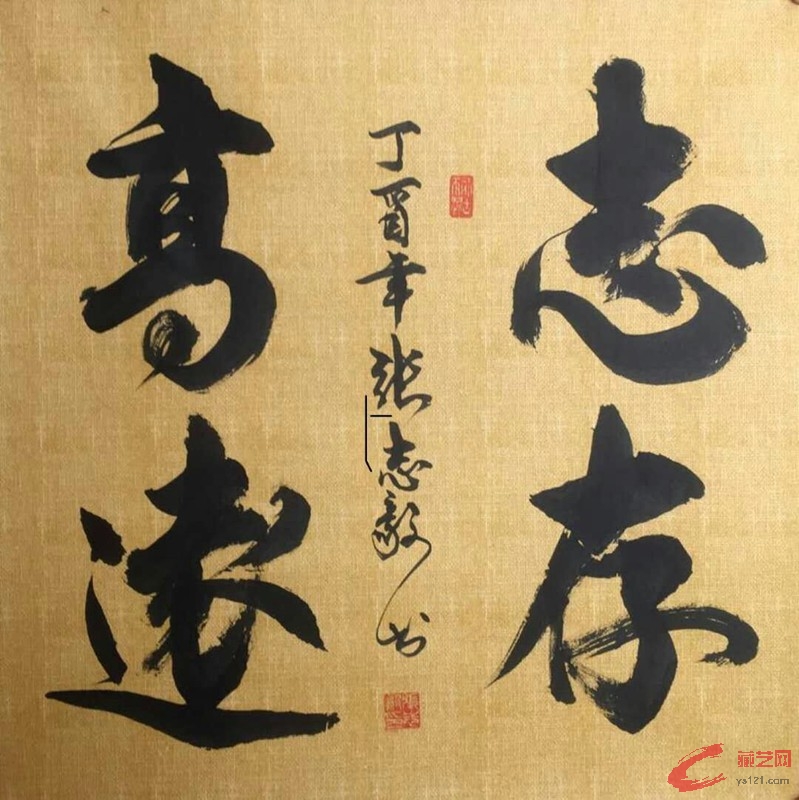 志存
高遠
丁酉年張志毅书
藏艺网
ys121.com